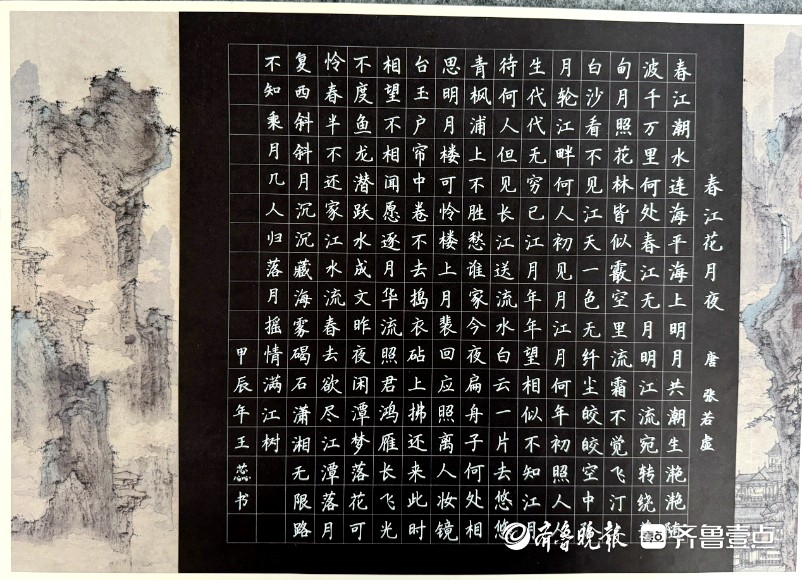 春江花月夜 唐 张若虚
春江潮水连海平海上明月共潮生滟滟随
波千万里何处春江无月明江流宛转绕
甸月照花林皆似霰空里流霜不觉飞汀
白沙看不见江天一色无纤尘皎皎空中
月轮江畔何人初见月江月何年初照人人
生代代无穷已江月年年望相似不知江月
待何人但见长江送流水白云一片去悠悠
青枫浦上不胜愁谁家今夜扁舟子何处相
思明月楼可怜楼上月裴回应照离人妆镜
台玉户帘中卷不去捣衣砧上拂还来此时
相望不相闻愿逐月华流照君鸿雁长飞光
不度鱼龙潜跃水成文昨夜闲潭梦落花可
怜春半不还家江水流春去欲尽江潭落月
复西斜斜月沉沉藏海雾碣石潇湘无限路
不知乘月几人归落月摇情满江树
甲辰年王蕊书
齐鲁晚报 齐鲁壹点